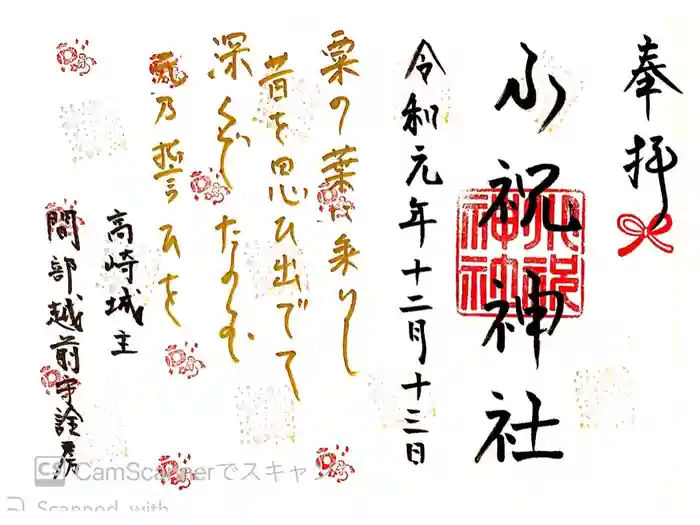 奉拝
小祝神社
小祝神社
令和元年十二月十三日
粟の葉に乗りし
昔を思ひ出でて
深くぞたのむ
乃誓ひを
高崎城主
間部越前守詮房
CamScannerでスキャン
Scanned with